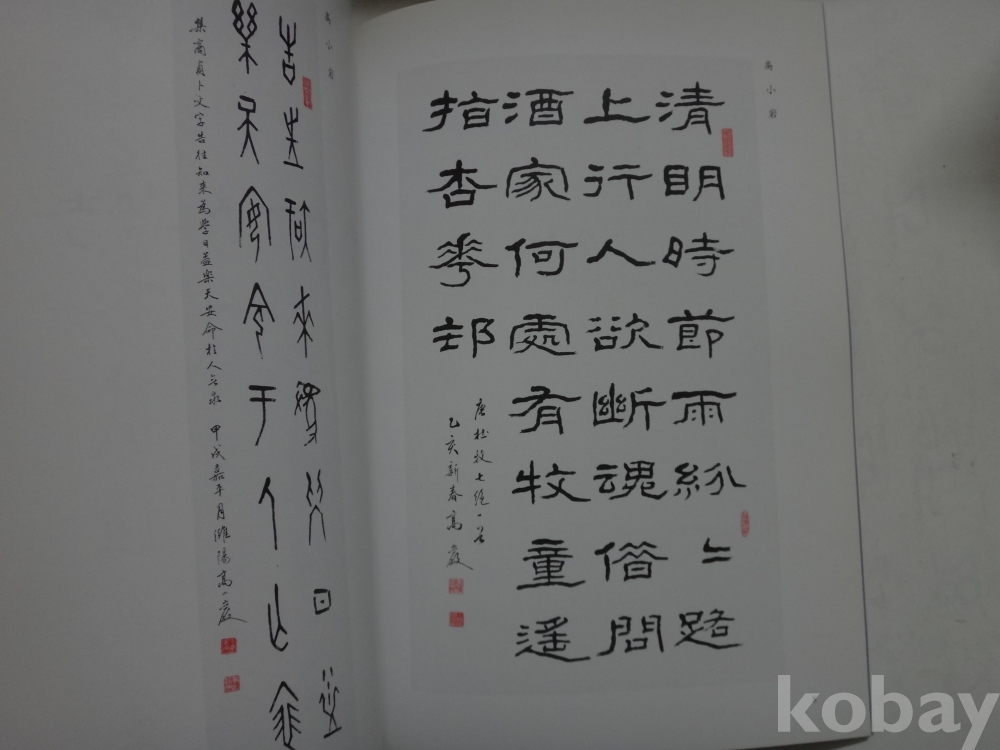 高小岩
清明時節雨紛〻路
上行人欲斷魂借問
酒家何處有牧童遙
指杏華邨
唐杜牧七絕一首
乙亥新春高小巖
高小岩
告往知來為學日益
樂天安命于人亡求
集商貞卜文字告往知來為學日益樂天安命於人亡求 甲戌嘉平月濰陽高小巖
kobay